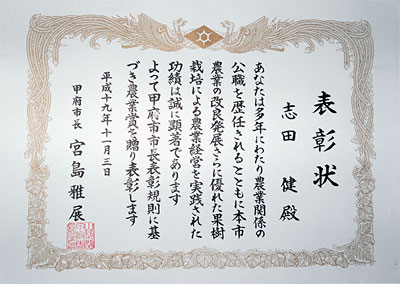 表彰状
志田 健 殿
あなたは多年にわたり農業関係の
公職を歴任されるとともに本市
農業の改良発展さらに優れた果樹
栽培による農業経営を実践された
功績は誠に顕著であります
よって甲府市市長表彰規則に基
づき農業賞を贈り表彰します
平成十九年十一月三日
甲府市長 宮島雅展